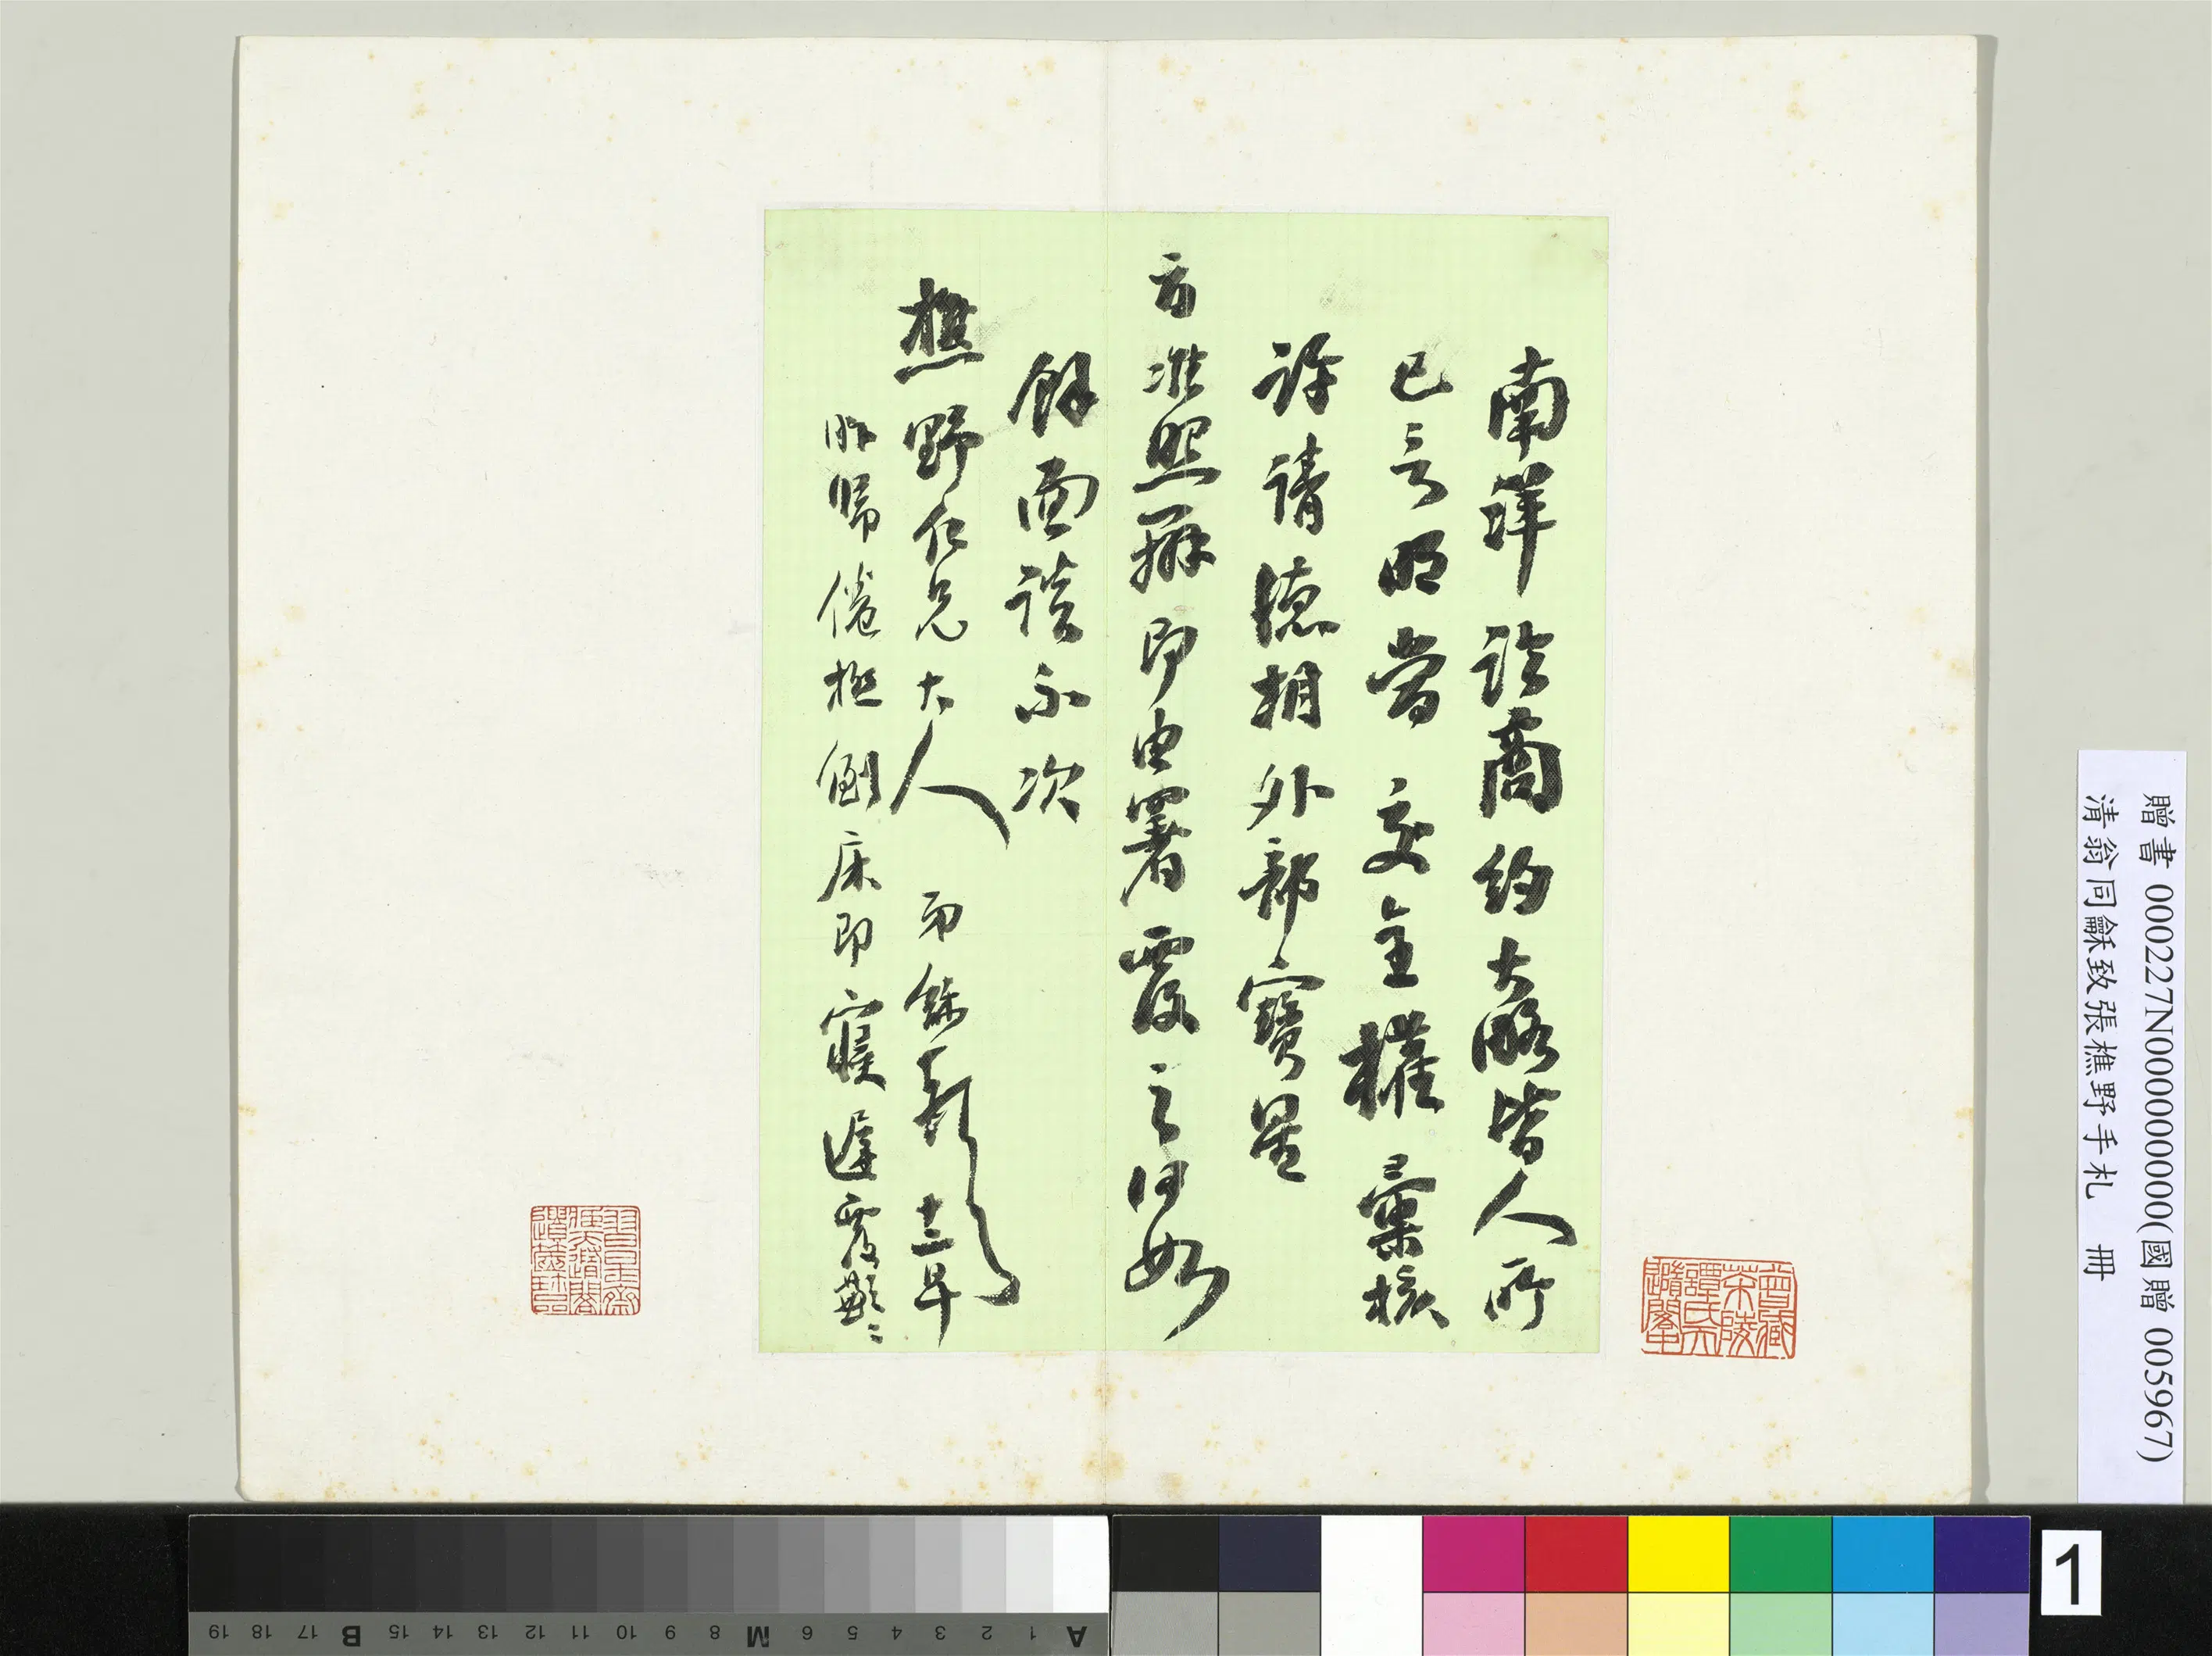 南洋論商約大略皆人所
已言明當交主權彙核
許請德相外部寶星
旨准照辦即由署覆之何如
餘面談不次
樵野仁兄大人 弟龢頓 十三早
昨歸倦極倒床即寢遲覆歉歉
贈書 000227N000000000(國贈 005967)
清翁同龢致張樵野手札 冊
1
A 1 2 3 4 5 6 M 8 9 10 11 12 13 14 15 B 17 18 19